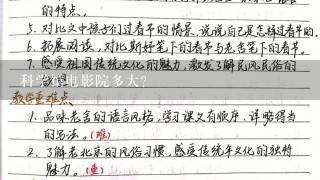 的特点。
5. 对比文中孩子们过春节的情景，说说自己是怎样过春节的。
6. 拓展阅读，对比斯妤笔下的春节与老舍笔下的春节。
7. 感受祖国传统文化的魅力，激发了解民风民俗的
科学馆电影院多大?
教学重难点
1. 品味老舍的语言风格，学习课文有顺序、详略得当
的写法。(难)
2. 了解老北京的风俗习惯，感受传统年文化的独特
魅力。(重)